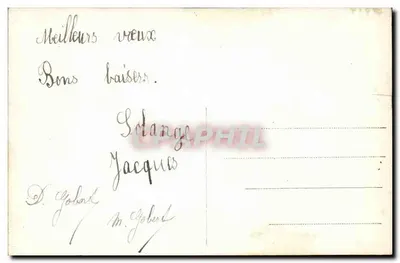 Meilleurs vœux
Bons baisers.
Solange
CPAPHIL
Jacques
D. Gobert
M. Gobert